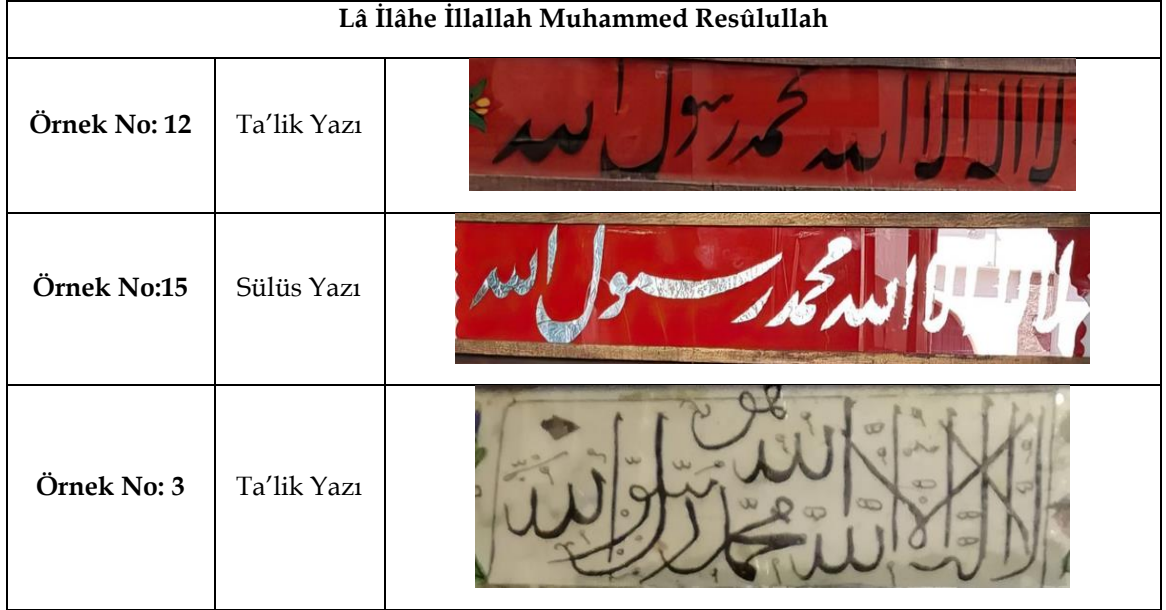 Lâ İlâhe İllallah Muhammed Resûlullah
Örnek No: 12
Ta’lik Yazı
لا اله الا الله محمد رسول الله
Örnek No:15
Sülüs Yazı
لا اله الا الله محمد رسول الله
Örnek No: 3
Ta’lik Yazı
لا اله الا الله محمد رسول الله